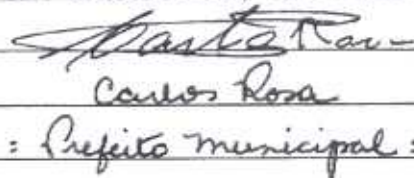 Carlos Rosa
: Prefeito Municipal :